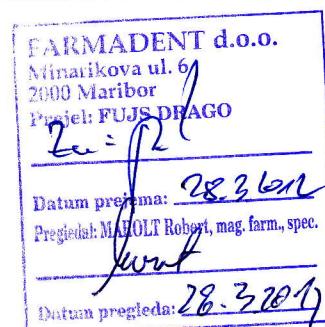 FARMADENT d.o.o.
Minarikova ul. 6
2000 Maribor
Prejel: FUJS DRAGO
Za:
Datum prejema: 28.3.2012
Pregledal: MAROLT Robert, mag. farm., spec.
Datum pregleda: 28.3.2012